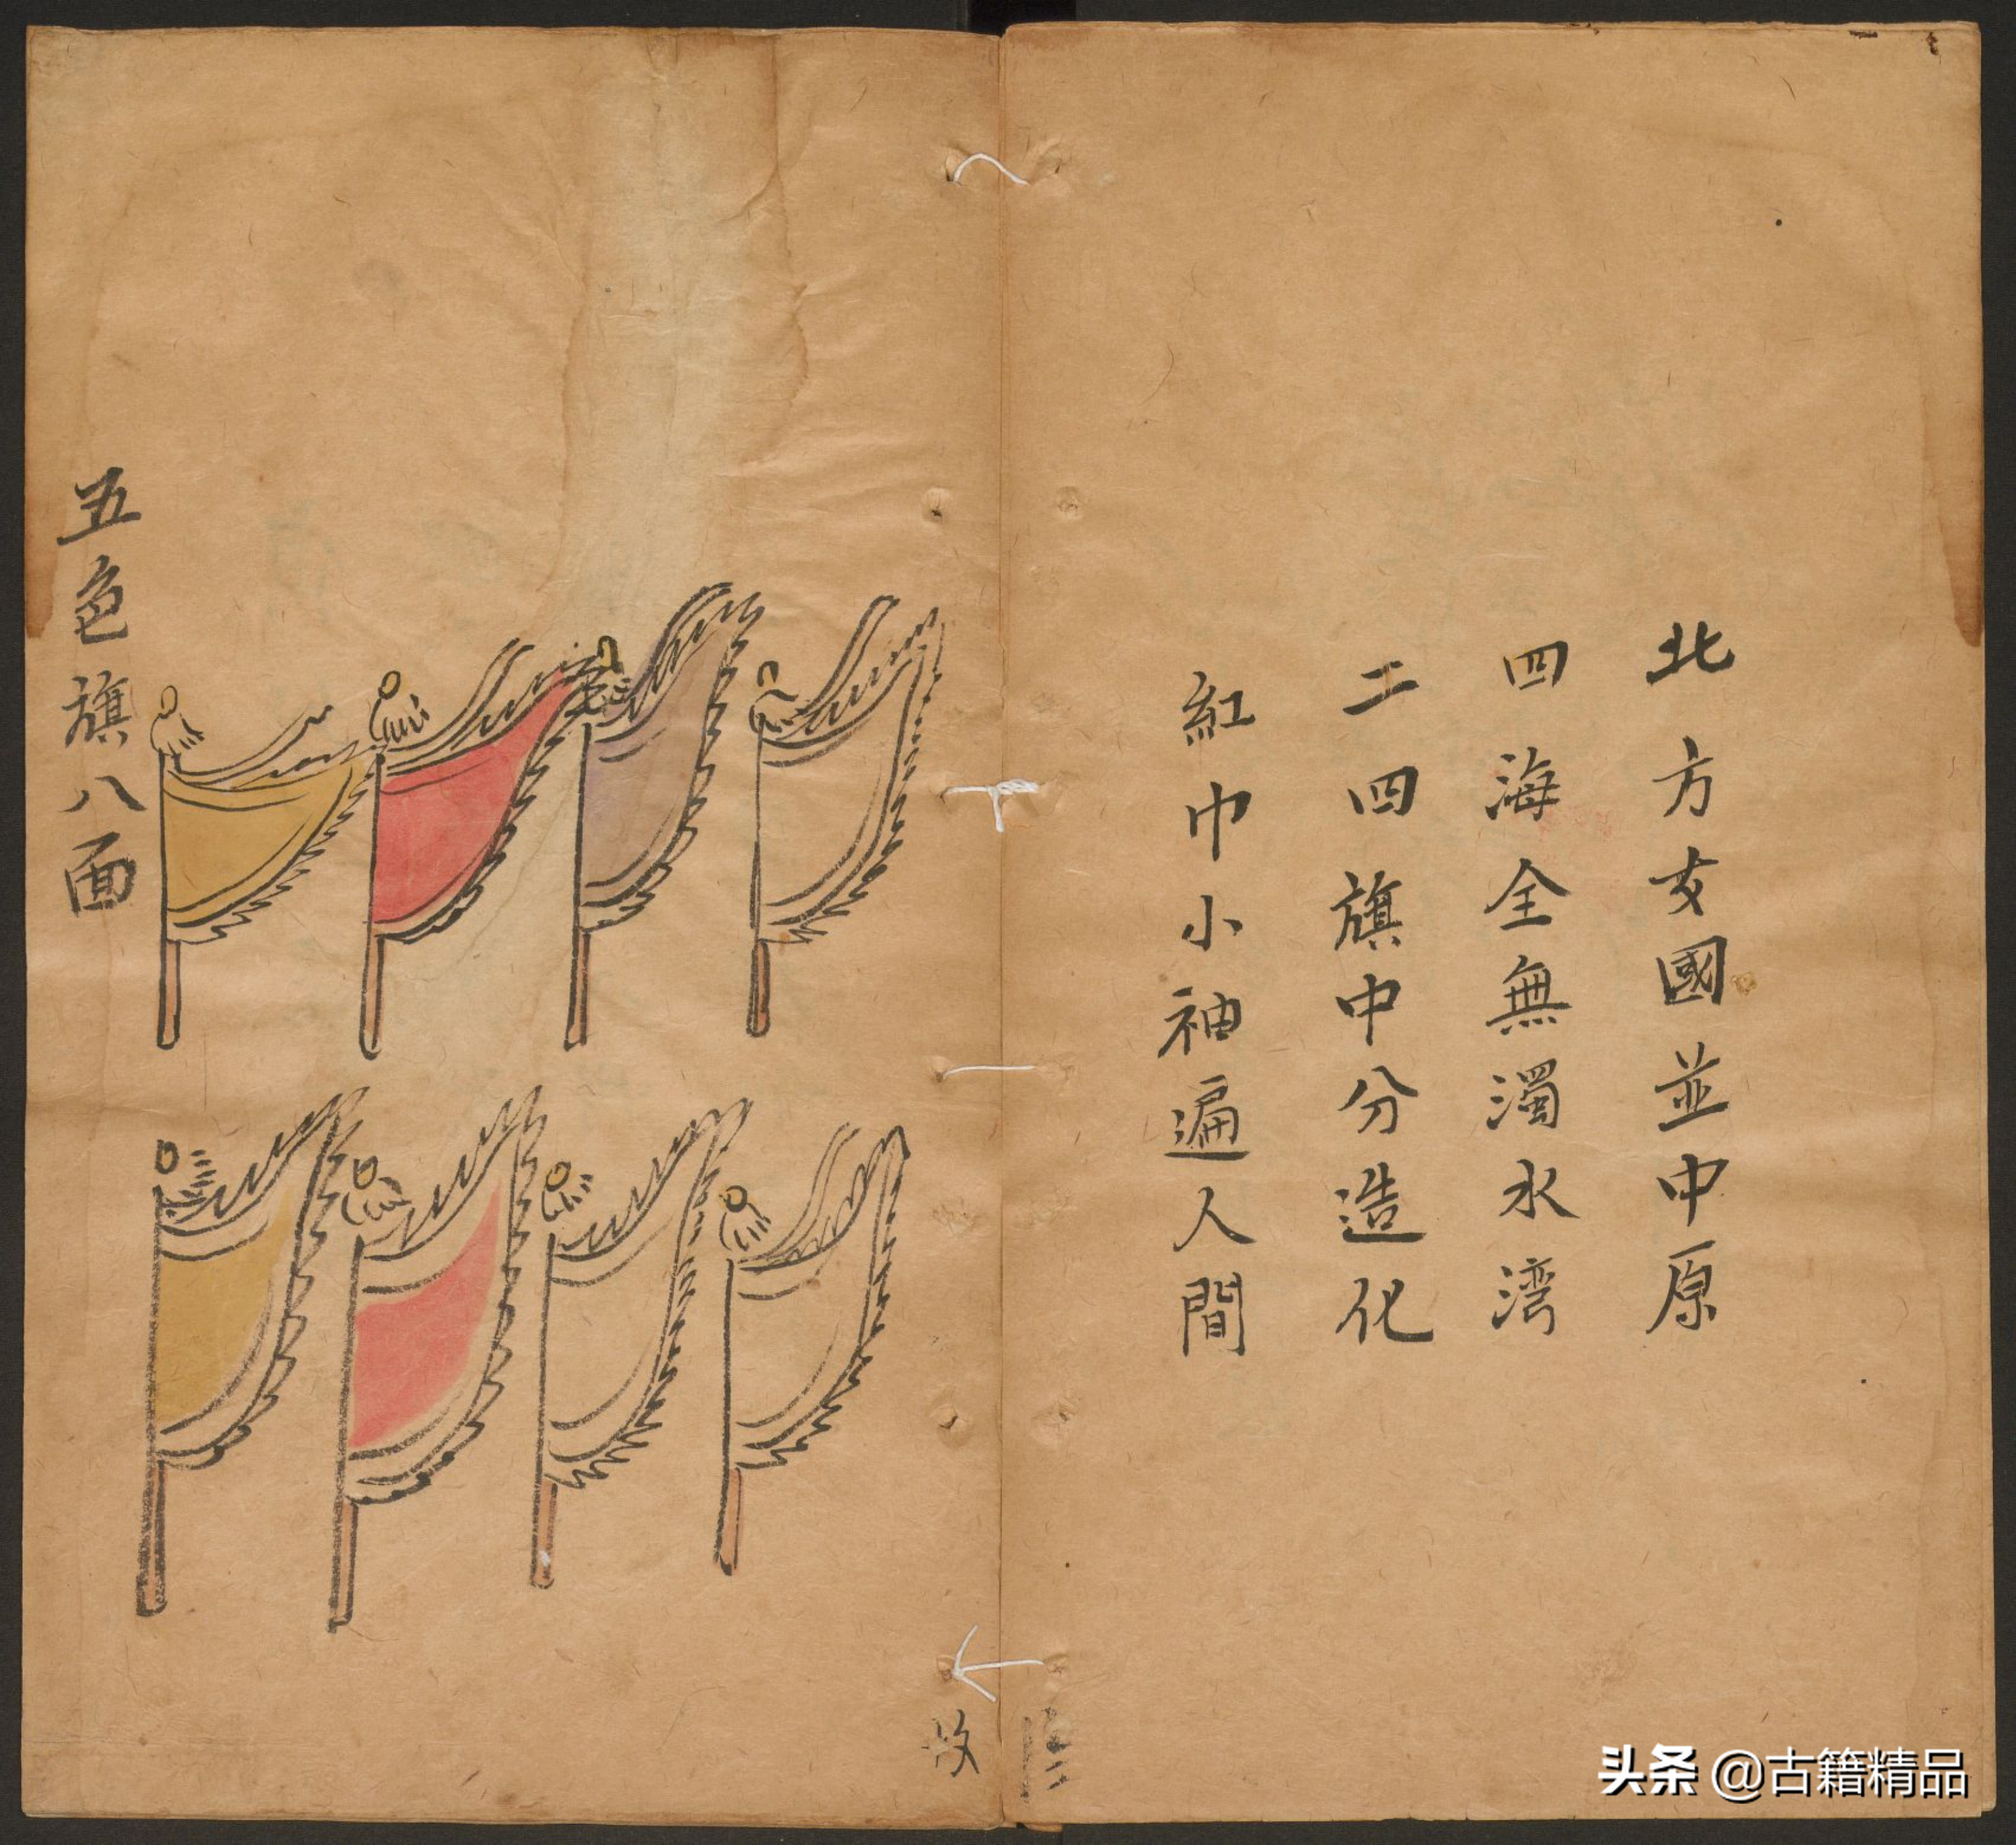 北方女國並中原
四海全無濁水湾
二四旗中分造化
紅巾小袖遍人間
五色旗八面
头条 @古籍精品